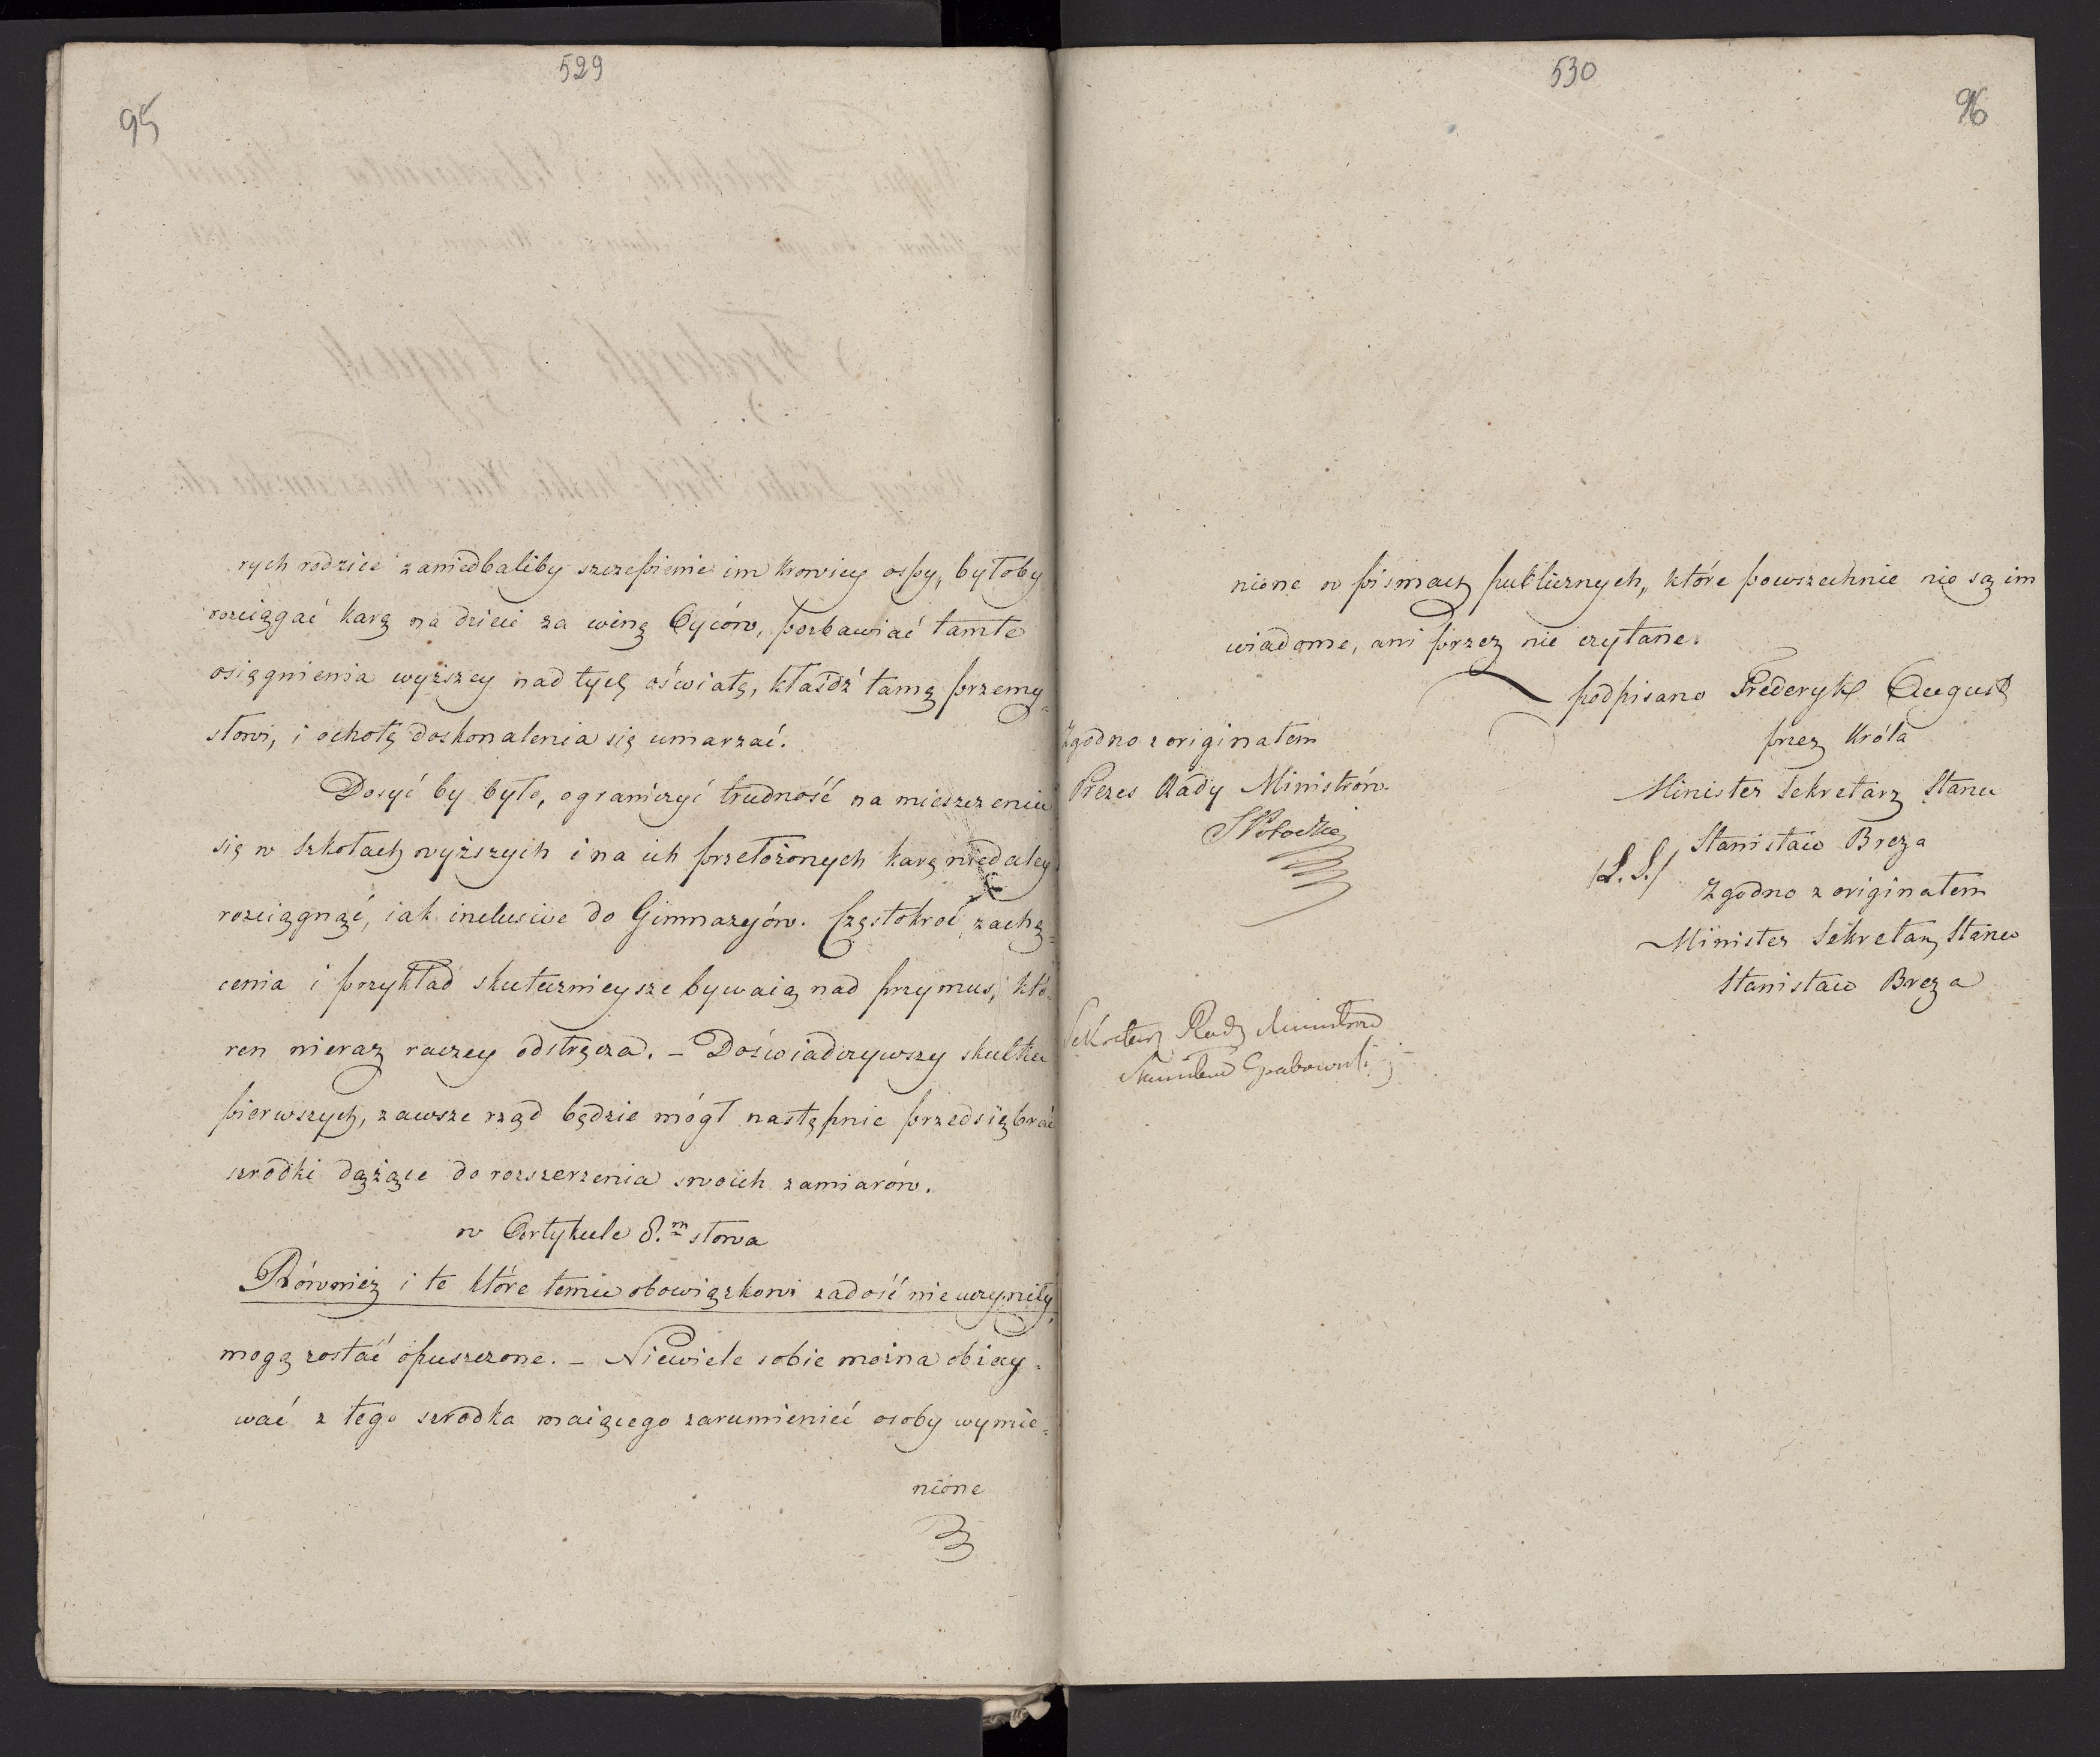 529
95
rych rodzice zaniedbaliby szczepienie im krowiey ospy, byłoby
rozciągać karę na dzieci za winę Oyców, pozbawiać tamte
osiągnienia wyższey nad tych oświatę, kłaśdź tamę przemy=
słowi, i ochotę doskonalenia się umarzać.
Dosyć by było, ograniczyć trudność na mieszczeniu
się w Szkołach wyższych i na ich przełożonych karę niedaley
rozciągnąć, iak inclusive do Gimnazyów. Częstokroć zachę=
cenia i przykład skutecznieysze bywaią nad przymus, któ=
ren nieraz raczey odstręcza. – Doświadczywszy skutku
pierwszych, zawsze rząd będzie mógł następnie przedsiębrać
szrodki dążące do rozszerzenia swoich zamiarów.
w Artykule 8.m słowa
Również i te które temu obowiązkowi zadość nie uczyniły,
mogą zostać opuszczone. – Niewiele sobie można obiecy=
wać z tego szrodka maiącego zarumienić osoby wymie=
nione
530
96
nione w pismach publicznych, które powszechnie nie są im
wiadome, ani przez nie czytane.
podpisano Frederyk August
przez Króla
Minister Sekretarz Stanu
Stanisław Breza
/L.S./
Zgodno z originałem
Minister Sekretarz Stanu
Stanisław Breza
Zgodno z originałem
Prezes Rady Ministrów
S Potocki
Sekretarz Rady Ministrów
Stanisław Grabowski